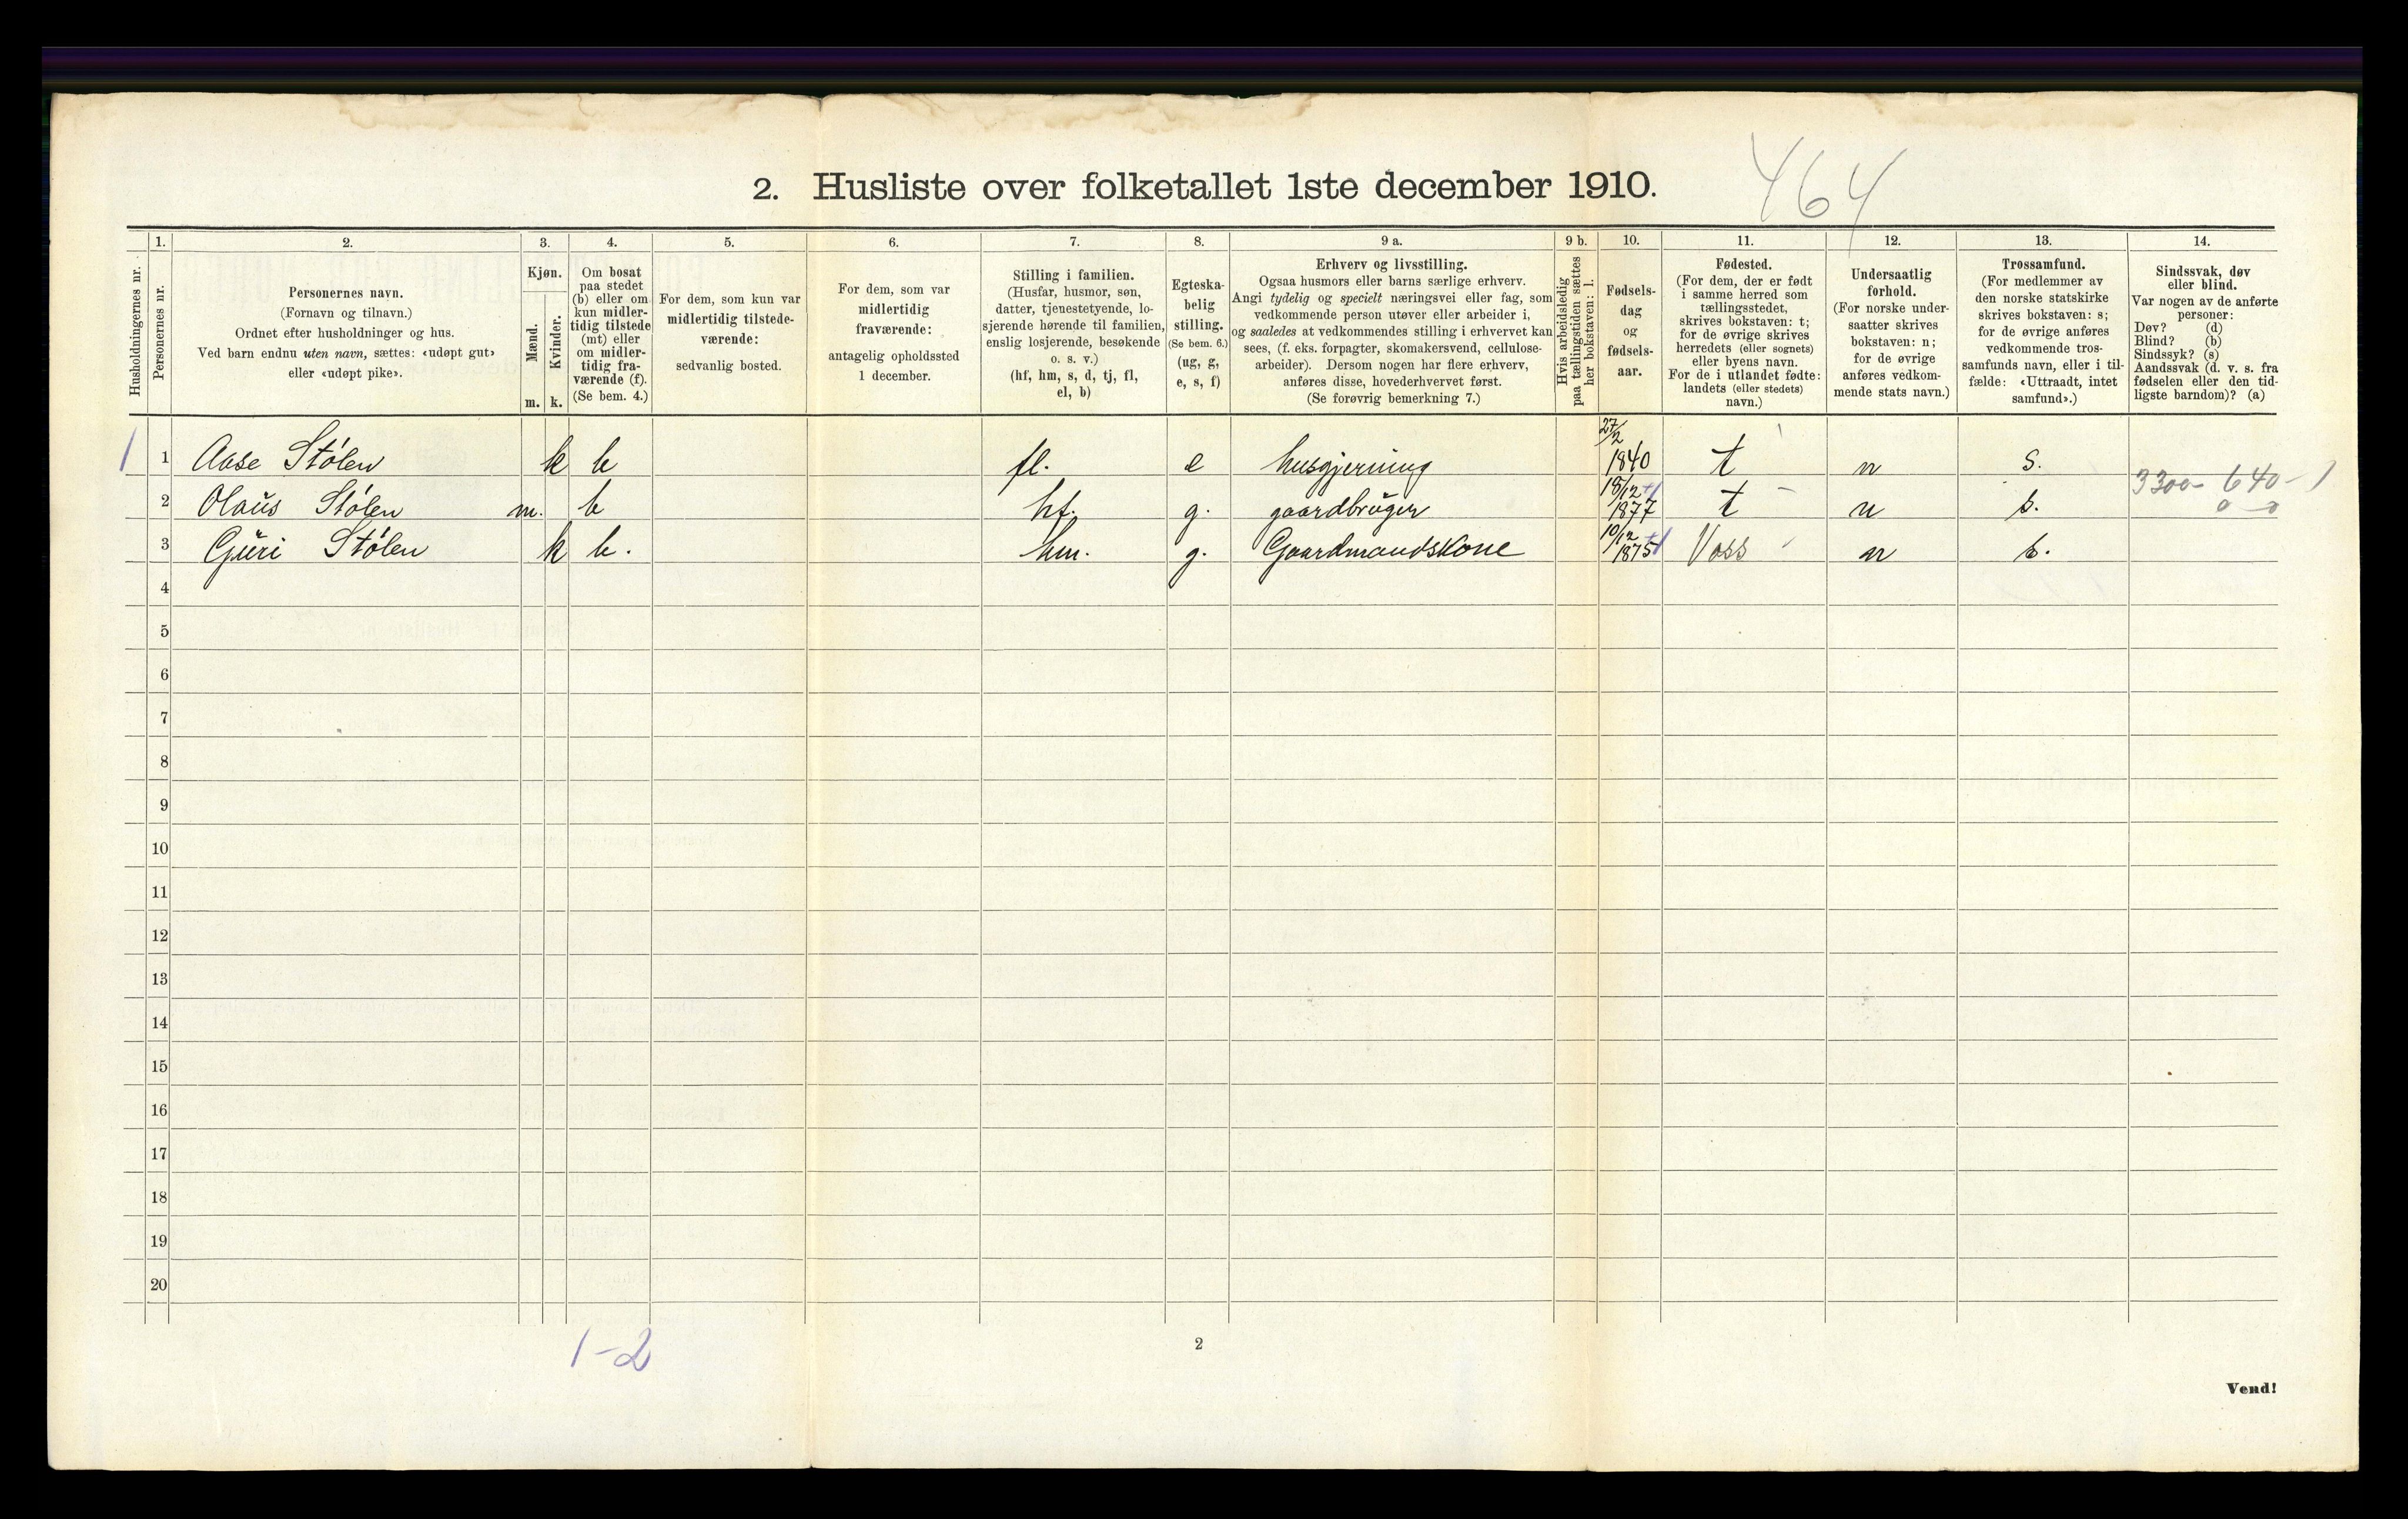 464
2. Husliste over folketallet 1ste december 1910.
Husholdningernes nr.
1.
Personernes nr.
2.
Personernes navn.
(Fornavn og tilnavn.)
Ordnet efter husholdninger og hus.
Ved barn endnu uten navn, sættes: «udøpt gut»
eller «udøpt pike».
3.
Kjøn.
Mænd.
Kvinder.
m. k.
4.
Om bosat
paa stedet
(b) eller om
kun midler-
tidig tilstede
(mt) eller
om midler-
tidig fra-
værende (f).
(Se bem. 4.)
5.
For dem, som kun var
midlertidig tilstede-
værende:
sedvanlig bosted.
6.
For dem, som var
midlertidig
fraværende:
antagelig opholdssted
1 december.
7.
Stilling i familien.
(Husfar, husmor, søn,
datter, tjenestetyende, lo-
sjerende hørende til familien,
enslig losjerende, besøkende
o. s. v.)
(hf, hm, s, d, tj, fl,
el, b)
8.
Egteska-
belig
stilling.
(Se bem. 6.)
(ug, g,
e, s, f)
9 a.
Erhverv og livsstilling.
Ogsaa husmors eller barns særlige erhverv.
Angi tydelig og specielt næringsvei eller fag, som
vedkommende person utøver eller arbeider i,
og saaledes at vedkommendes stilling i erhvervet kan
sees, (f. eks. forpagter, skomakersvend, cellulose-
arbeider). Dersom nogen har flere erhverv,
anføres disse, hovederhvervet først.
(Se forøvrig bemerkning 7.)
9 b.
Hvis arbeidsledig
paa tællingstiden sættes
her bokstaven: l.
10.
Fødsels-
dag
og
fødsels-
aar.
11.
Fødested.
(For dem, der er født
i samme herred som
tællingsstedet,
skrives bokstaven: t;
for de øvrige skrives
herredets (eller sognets)
eller byens navn.
For de i utlandet fødte:
landets (eller stedets)
navn.)
12.
Undersaatlig
forhold.
(For norske under-
saatter skrives
bokstaven: n;
for de øvrige
anføres vedkom-
mende stats navn.)
13.
Trossamfund.
(For medlemmer av
den norske statskirke
skrives bokstaven: s;
for de øvrige anføres
vedkommende tros-
samfunds navn, eller i til-
fælde: «Uttraadt, intet
samfund».)
14.
Sindssvak, døv
eller blind.
Var nogen av de anførte
personer:
Døv? (d)
Blind? (b)
Sindssyk? (s)
Aandssvak (d. v. s. fra
fødselen eller den tid-
ligste barndom)? (a)
1 1 Aase Stølen k b fl. e husgjerning 27/2 1840 t n s.
3300 - 640 - 1
0 0
2 Olaus Stølen m. b hf. g. gaardbruger 18/12 1877 t n s.
3 Guri Stølen k b. hm. g. Gaardmandskone 10/12 1875 Voss n s.
4
5
6
7
8
9
10
11
12
13
14
15
16
17
18
19
20
1-2
2
Vend!